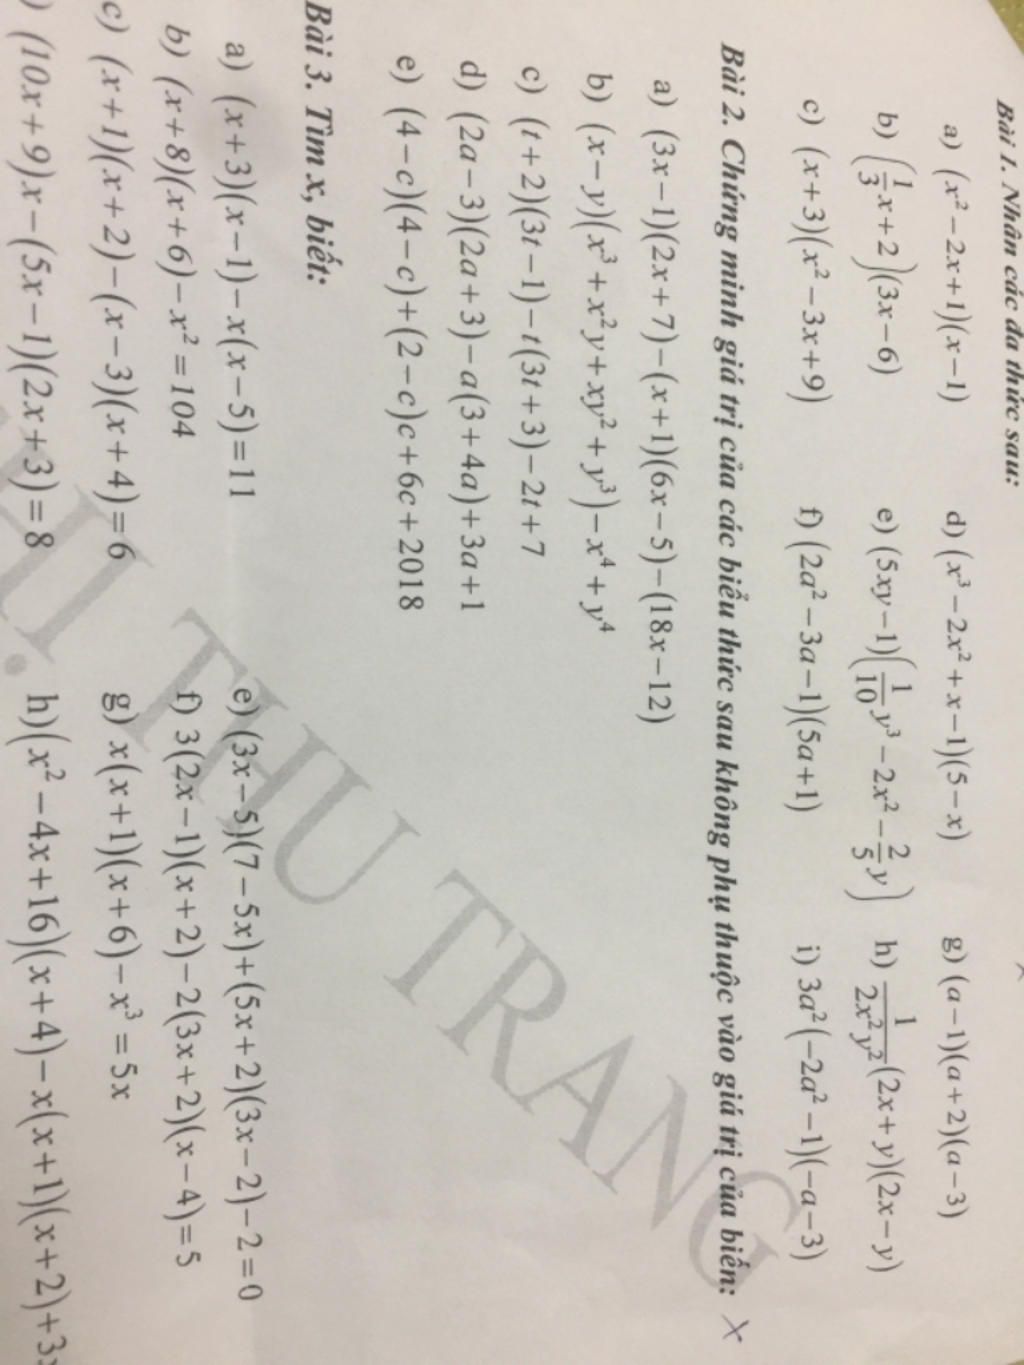 Bài 1. Nhân các đa thức sau:
a) (x² − 2x + 1)(x − 1) d) (x³ − 2x² + x − 1)(5 − x) g) (a − 1)(a + 2)(a − 3)
b) (1/3 x + 2)(3x − 6) e) (5xy − 1)(1/10 y³ − 2x² − 2/5 y) h) 1/(2x²y²) (2x + y)(2x − y)
c) (x + 3)(x² − 3x + 9) f) (2a² − 3a − 1)(5a + 1) i) 3a²(−2a² − 1)(−a − 3)
Bài 2. Chứng minh giá trị của các biểu thức sau không phụ thuộc vào giá trị của biến: X
a) (3x − 1)(2x + 7) − (x + 1)(6x − 5) − (18x − 12)
b) (x − y)(x³ + x²y + xy² + y³) − x⁴ + y⁴
c) (t + 2)(3t − 1) − t(3t + 3) − 2t + 7
d) (2a − 3)(2a + 3) − a(3 + 4a) + 3a + 1
e) (4 − c)(4 − c) + (2 − c)c + 6c + 2018
Bài 3. Tìm x, biết:
a) (x + 3)(x − 1) − x(x − 5) = 11 e) (3x − 5)(7 − 5x) + (5x + 2)(3x − 2) − 2 = 0
b) (x + 8)(x + 6) − x² = 104 f) 3(2x − 1)(x + 2) − 2(3x + 2)(x − 4) = 5
c) (x + 1)(x + 2) − (x − 3)(x + 4) = 6 g) x(x + 1)(x + 6) − x³ = 5x
) (10x + 9)x − (5x − 1)(2x + 3) = 8 h) (x² − 4x + 16)(x + 4) − x(x + 1)(x + 2) + 3
THU TRANG